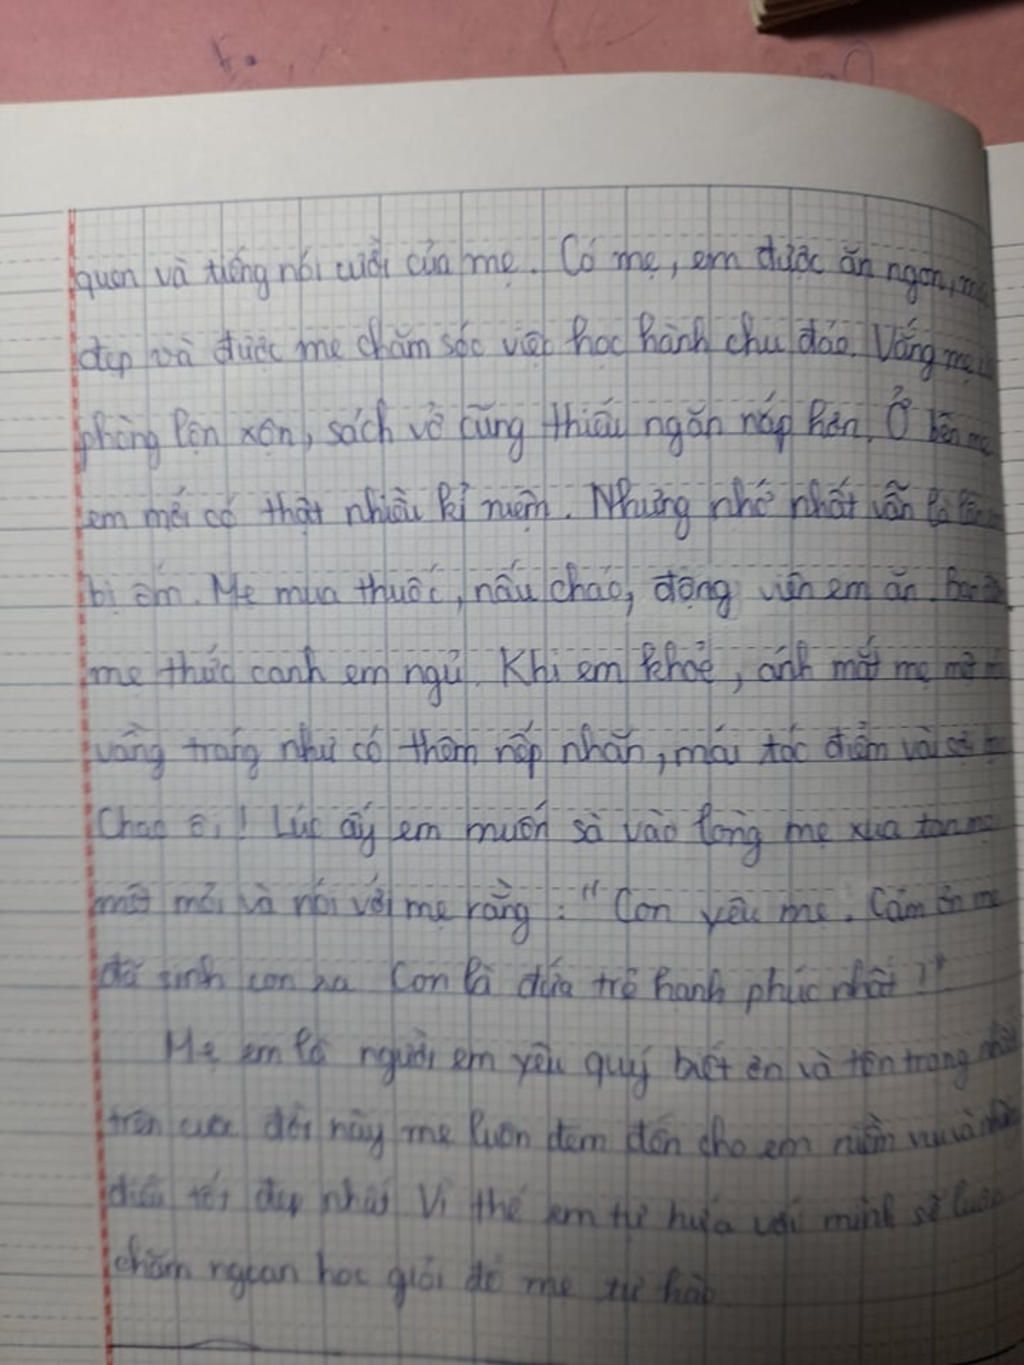 quen và tiếng nói cười của mẹ. Có mẹ, em được ăn ngon,
đẹp và được mẹ chăm sóc việc học hành chu đáo. Vắng mẹ
phòng lộn xộn, sách vở cũng thiếu ngăn nắp hơn. Ở bên mẹ
em mới có thật nhiều kỉ niệm. Nhưng nhớ nhất vẫn là lần
bị ốm. Mẹ mua thuốc, nấu cháo, động viên em ăn.
mẹ thức canh em ngủ. Khi em khoẻ, ánh mắt mẹ
vầng tráng như có thêm nếp nhăn, mái tóc điểm vài sợi
Chao ôi! Lúc ấy em muốn sà vào lòng mẹ xua tan
mệt mỏi và nói với mẹ rằng: "Con yêu mẹ. Cám ơn mẹ
đã sinh con ra Con là đứa trẻ hạnh phúc nhất!"
Mẹ em là người em yêu quý biết ơn và tôn trọng nhất
trên cuộc đời này mẹ luôn đem đến cho em niềm vui và
điều tốt đẹp nhất Vì thế em tự hứa với mình sẽ luôn
chăm ngoan học giỏi để mẹ tự hào